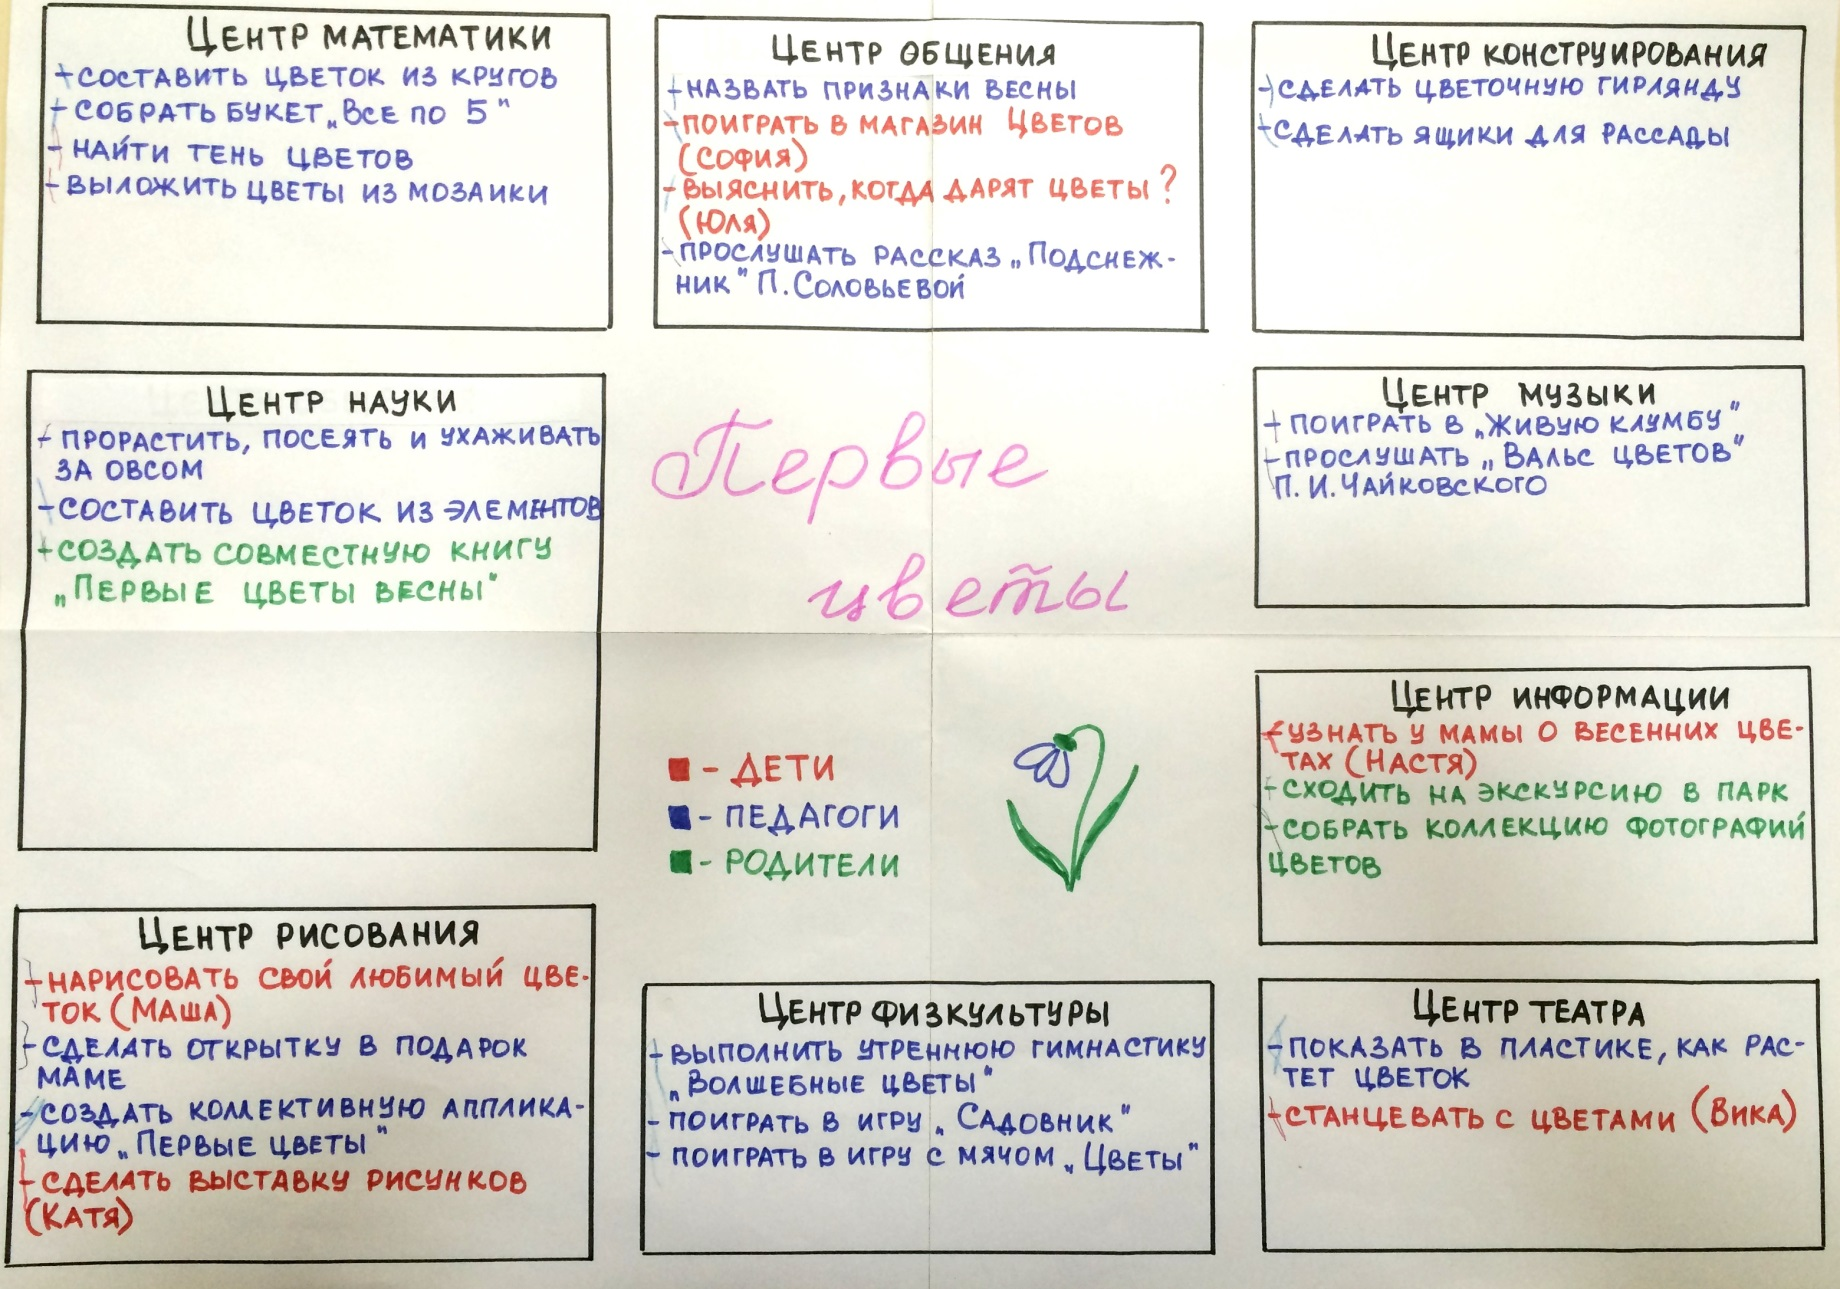 ЦЕНТР МАТЕМАТИКИ
- СОСТАВИТЬ ЦВЕТОК ИЗ КРУГОВ
- СОБРАТЬ БУКЕТ „ВСЕ ПО 5"
- НАЙТИ ТЕНЬ ЦВЕТОВ
- ВЫЛОЖИТЬ ЦВЕТЫ ИЗ МОЗАИКИ
ЦЕНТР ОБЩЕНИЯ
- НАЗВАТЬ ПРИЗНАКИ ВЕСНЫ
- ПОИГРАТЬ В МАГАЗИН ЦВЕТОВ
(СОФИЯ)
- ВЫЯСНИТЬ, КОГДА ДАРЯТ ЦВЕТЫ?
(ЮЛЯ)
- ПРОСЛУШАТЬ РАССКАЗ „ПОДСНЕЖ-
НИК" П. СОЛОВЬЕВОЙ
ЦЕНТР КОНСТРУИРОВАНИЯ
- СДЕЛАТЬ ЦВЕТОЧНУЮ ГИРЛЯНДУ
- СДЕЛАТЬ ЯЩИКИ ДЛЯ РАССАДЫ
ЦЕНТР НАУКИ
- ПРОРАСТИТЬ, ПОСЕЯТЬ И УХАЖИВАТЬ
ЗА ОВСОМ
- СОСТАВИТЬ ЦВЕТОК ИЗ ЭЛЕМЕНТОВ
- СОЗДАТЬ СОВМЕСТНУЮ КНИГУ
„ПЕРВЫЕ ЦВЕТЫ ВЕСНЫ"
Первые
цветы
ЦЕНТР МУЗЫКИ
- ПОИГРАТЬ В „ЖИВУЮ КЛУМБУ"
- ПРОСЛУШАТЬ „ВАЛЬС ЦВЕТОВ"
П. И. ЧАЙКОВСКОГО
- ДЕТИ
- ПЕДАГОГИ
- РОДИТЕЛИ
ЦЕНТР ИНФОРМАЦИИ
- УЗНАТЬ У МАМЫ О ВЕСЕННИХ ЦВЕ-
ТАХ (НАСТЯ)
- СХОДИТЬ НА ЭКСКУРСИЮ В ПАРК
- СОБРАТЬ КОЛЛЕКЦИЮ ФОТОГРАФИЙ
ЦВЕТОВ
ЦЕНТР РИСОВАНИЯ
- НАРИСОВАТЬ СВОЙ ЛЮБИМЫЙ ЦВЕ-
ТОК (МАША)
- СДЕЛАТЬ ОТКРЫТКУ В ПОДАРОК
МАМЕ
- СОЗДАТЬ КОЛЛЕКТИВНУЮ АППЛИКА-
ЦИЮ „ПЕРВЫЕ ЦВЕТЫ"
- СДЕЛАТЬ ВЫСТАВКУ РИСУНКОВ
(КАТЯ)
ЦЕНТР ФИЗКУЛЬТУРЫ
- ВЫПОЛНИТЬ УТРЕННЮЮ ГИМНАСТИКУ
„ВОЛШЕБНЫЕ ЦВЕТЫ"
- ПОИГРАТЬ В ИГРУ „САДОВНИК"
- ПОИГРАТЬ В ИГРУ С МЯЧОМ „ЦВЕТЫ"
ЦЕНТР ТЕАТРА
- ПОКАЗАТЬ В ПЛАСТИКЕ, КАК РАС-
ТЕТ ЦВЕТОК
- СТАНЦЕВАТЬ С ЦВЕТАМИ (ВИКА)